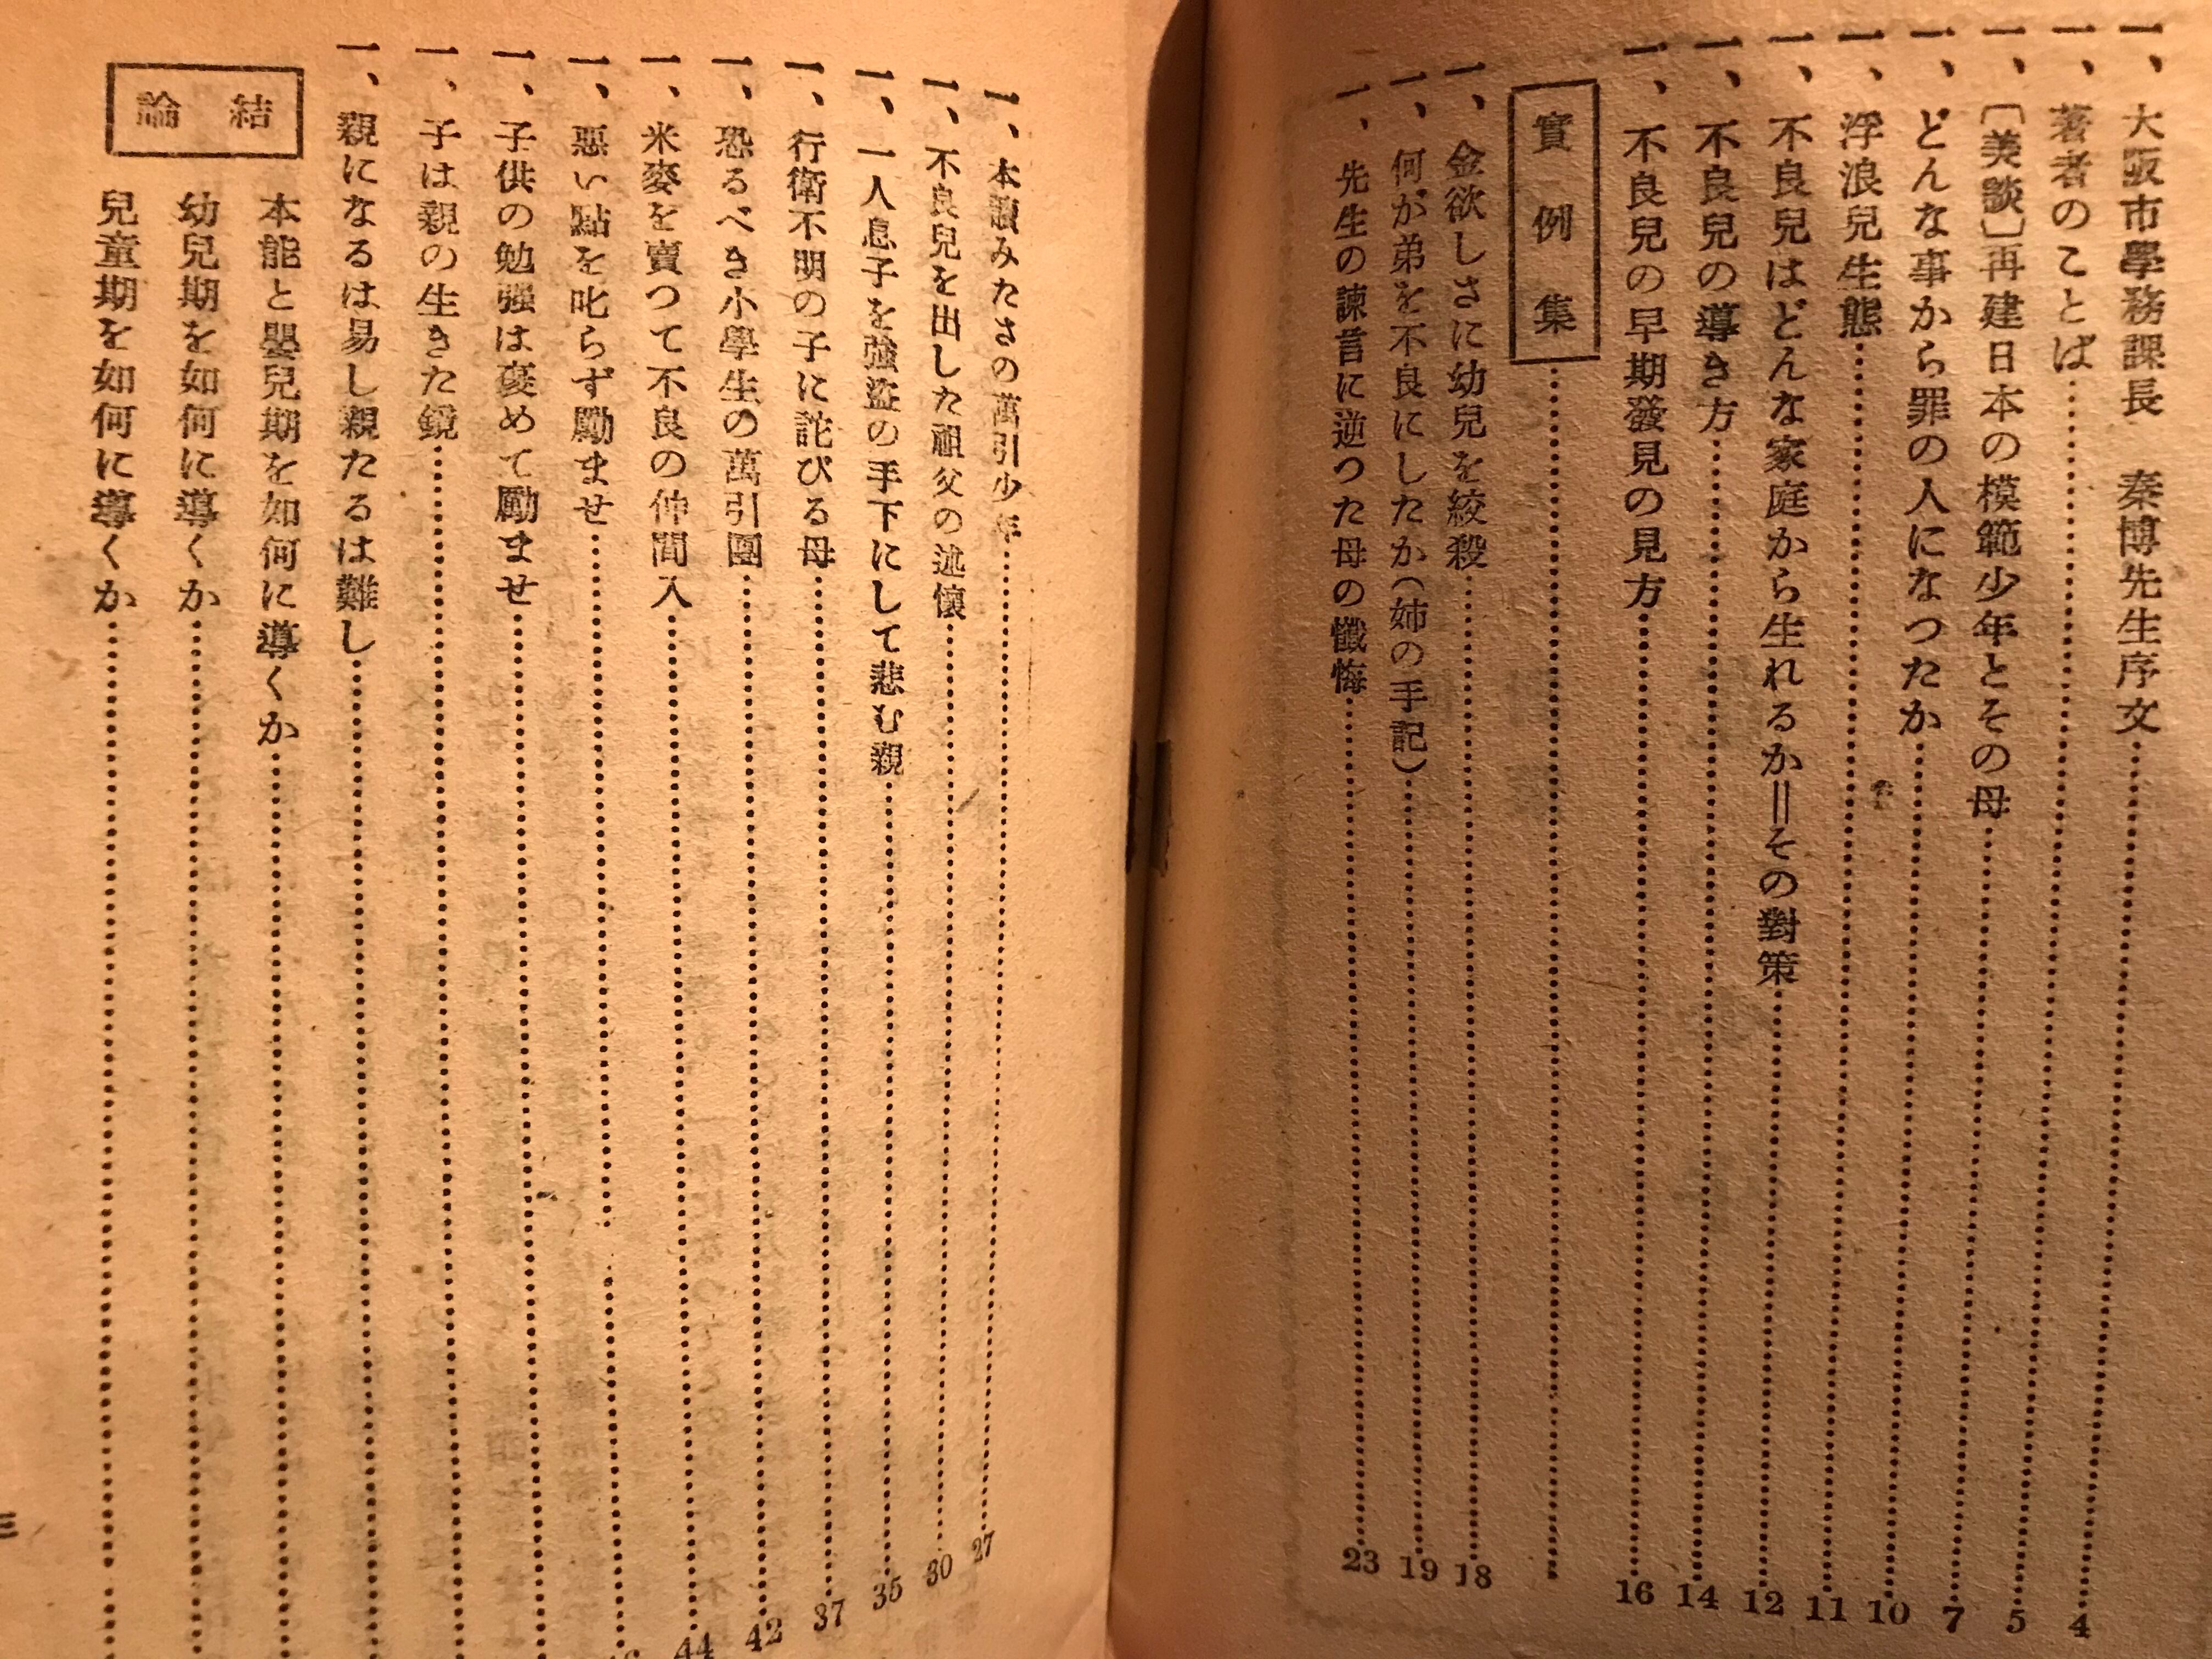 一、大阪市學務課長　秦博先生序文……4
一、著者のことば……5
一、〔美談〕再建日本の模範少年とその母……7
一、どんな事から罪の人になつたか……10
一、浮浪兒生態……11
一、不良兒はどんな家庭から生れるか＝その對策……12
一、不良兒の導き方……14
一、不良兒の早期發見の見方……16
實例集……
一、金欲しさに幼兒を絞殺……18
一、何が弟を不良にしたか（姉の手記）……19
一、先生の諫言に逆つた母の懺悔……23
一、本讀みたさの萬引少年……27
一、不良兒を出した祖父の述懷……30
一、一人息子を強盜の手下にして悲む親……35
一、行衞不明の子に詫びる母……37
一、恐るべき小學生の萬引團……42
一、米麥を賣つて不良の仲間入……44
一、惡い點を叱らず勵ませ……
一、子供の勉强は褒めて勵ませ……
一、子は親の生きた鏡……
一、親になるは易し親たるは難し……
結論
本能と嬰兒期を如何に導くか……
幼兒期を如何に導くか……
兒童期を如何に導くか……
三